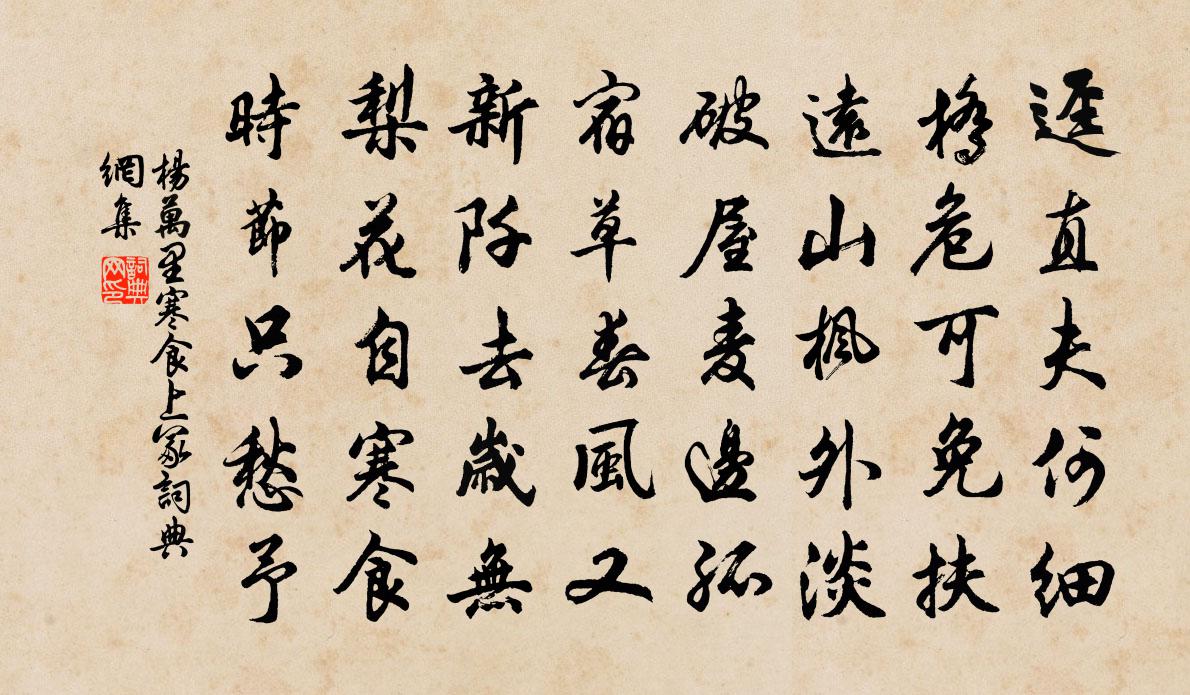 逕直夫何細
橋危可免扶
遠山楓外淡
破屋麦邊孤
宿草春風又
新阡去歲無
梨花自寒食
時節只愁予
楊萬里寒食上冢詞典
網集
詞典网印